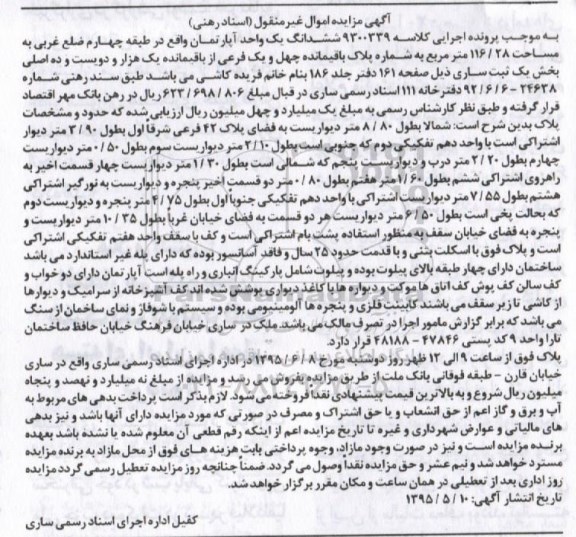 آگهی مزایده اموال غیرمنقول (اسناد رهنی)
به موجب پرونده اجرایی کلاسه ۹۳۰۰۳۳۹ ششدانگ یک واحد آپارتمان واقع در طبقه چهارم ضلع غربی به
مساحت ۲۸ / ۱۱۶ متر مربع به شماره پلاک باقیمانده چهل و یک فرعی از باقیمانده یک هزار و دویست و ده اصلی
بخش یک ثبت ساری ذیل صفحه ۱۶۱ دفتر جلد ۱۸۶ بنام خانم فریده کاشی می باشد طبق سند رهنی شماره
۲۴۶۳۸ - ۶ / ۶ / ۹۲ دفترخانه ۱۱۱ اسناد رسمی ساری در قبال مبلغ ۸۰۶ / ۶۹۸ / ۶۲۳ ریال در رهن بانک مهر اقتصاد
قرار گرفته و طبق نظر کارشناس رسمی به مبلغ یک میلیارد و چهل میلیون ریال ارزیابی شده که حدود و مشخصات
پلاک بدین شرح است: شمالا بطول ۸۰ / ۸ متر دیواریست به فضای پلاک ۴۲ فرعی شرقاً اول بطول ۹۰ / ۳ متر دیوار
اشتراکی است با واحد دهم تفکیکی دوم که جنوبی است بطول ۱۰ / ۲ متر دیواریست سوم بطول ۵۰ / ۰ متر دیواریست
چهارم بطول ۲۰ / ۲ متر درب و دیواریست پنجم که شمالی است بطول ۳۰ / ۱ متر دیواریست چهار قسمت اخیر به
راهروی اشتراکی ششم بطول ۶۰ / ۱ متر هفتم بطول ۸۰ / ۰ متر دو قسمت اخیر پنجره و دیواریست به نورگیر اشتراکی
هشتم بطول ۵۵ / ۷ متر دیواریست اشتراکی با واحد دهم تفکیکی جنوباً اول بطول ۷۵ / ۴ متر پنجره و دیواریست دوم
که بحالت پخی است بطول ۵۰ / ۶ متر دیواریست هر دو قسمت به فضای خیابان غرباً بطول ۳۵ / ۱۰ متر دیواریست و
پنجره به فضای خیابان سقف به منظور استفاده پشت بام اشتراکی است و کف با سقف واحد هفتم تفکیکی اشتراکی
است و پلاک فوق با اسکلت بتنی و با قدمت حدود ۲۵ سال و فاقد آسانسور بوده که دارای پله غیر استاندارد می باشد
ساختمان دارای چهار طبقه بالای پیلوت بوده و پیلوت شامل پارکینگ انباری و راه پله است آپارتمان دارای دو خواب و
کف سالن کف پوش کف اتاق ها موکت و دیواره ها با کاغذ دیواری پوشش شده اند کف آشپزخانه از سرامیک و دیوارها
از کاشی تا زیر سقف می باشند کابینت فلزی و پنجره ها آلومینیومی بوده و سیستم با شوفاژ و نمای ساختمان از سنگ
می باشد که برابر گزارش مامور اجرا در تصرف مالک می باشد. ملک در ساری خیابان فرهنگ خیابان حافظ ساختمان
تارا واحد ۹ کد پستی ۴۷۸۴۶ - ۴۸۱۸۸ قرار دارد.
پلاک فوق از ساعت ۹ الی ۱۲ ظهر روز دوشنبه مورخ ۸ / ۶ / ۱۳۹۵ در اداره اجرای اسناد رسمی ساری واقع در ساری
خیابان قارن - طبقه فوقانی بانک ملت از طریق مزایده بفروش می رسد و مزایده از مبلغ نه میلیارد و نهصد و پنجاه
میلیون ریال شروع و به بالاترین قیمت پیشنهادی نقداً فروخته می شود. لازم بذکر است پرداخت بدهی های مربوط به
آب و برق و گاز اعم از حق انشعاب و یا حق اشتراک و مصرف در صورتی که مورد مزایده دارای آنها باشد و نیز بدهی
های مالیاتی و عوارض شهرداری و غیره تا تاریخ مزایده اعم از اینکه رقم قطعی آن معلوم شده یا نشده باشد بعهده
برنده مزایده است و نیز در صورت وجود مازاد، وجوه پرداختی بابت هزینه های فوق از محل مازاد به برنده مزایده
مسترد خواهد شد و نیم عشر و حق مزایده نقداً وصول می گردد. ضمناً چنانچه روز مزایده تعطیل رسمی گردد مزایده
روز اداری بعد از تعطیلی در همان ساعت و مکان مقرر برگزار خواهد شد.
تاریخ انتشار آگهی: ۱۰ / ۵ / ۱۳۹۵
کفیل اداره اجرای اسناد رسمی ساری